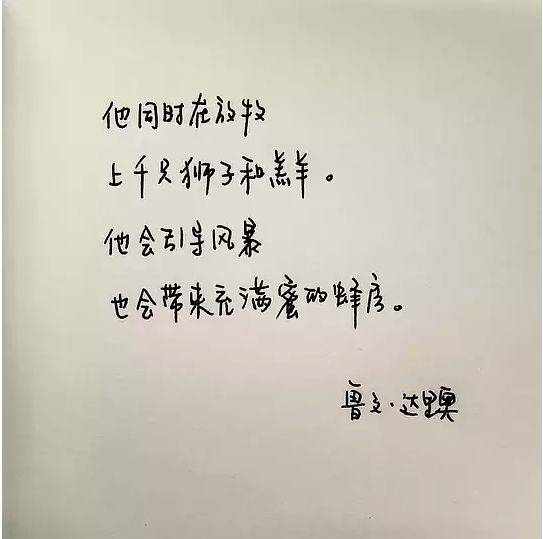 他同时在放牧
上千只狮子和羔羊。
他会引导风暴
也会带来充满蜜的蜂房。
鲁文·达里奥